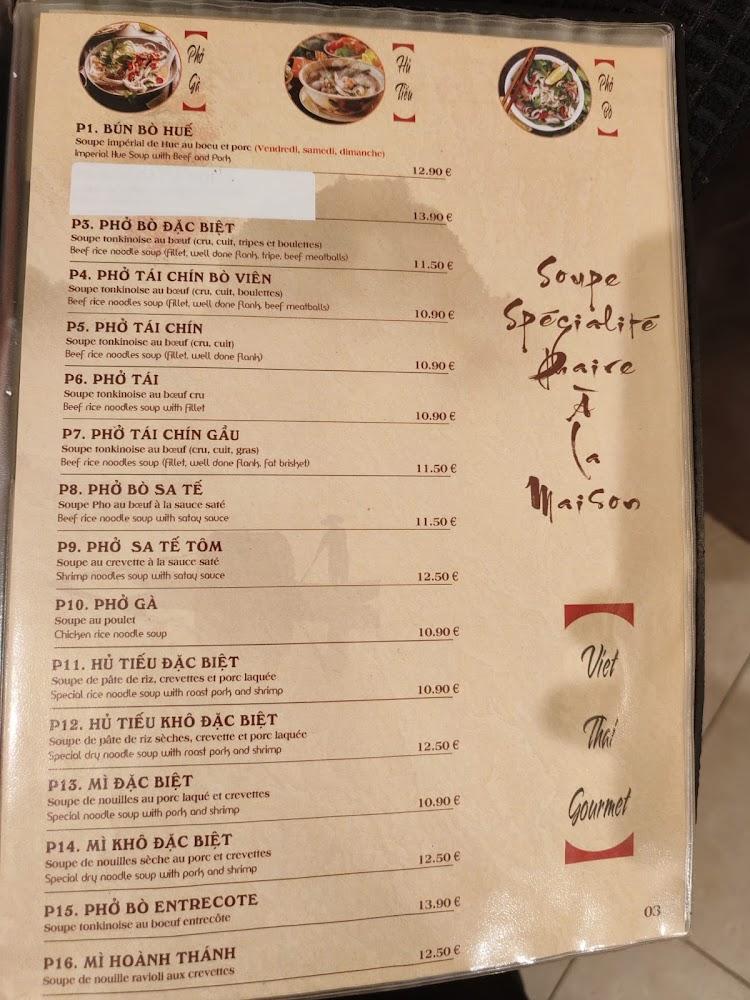 Phở
Gà
Hủ
Tiếu
Phở
Bò
P1. BÚN BÒ HUẾ
Soupe impérial de Hue au boeu et porc (Vendredi, samedi, dimanche)
Imperial Hue Soup with Beef and Pork
12.90 €
13.90 €
P3. PHỞ BÒ ĐẶC BIỆT
Soupe tonkinoise au bœuf (cru, cuit, tripes et boulettes)
Beef rice noodle soup (fillet, well done flank, tripe, beef meatballs)
11.50 €
P4. PHỞ TÁI CHÍN BÒ VIÊN
Soupe tonkinoise au bœuf (cru, cuit, boulettes)
Beef rice noodles soup (fillet, well done flank, beef meatballs)
10.90 €
P5. PHỞ TÁI CHÍN
Soupe tonkinoise au bœuf (cru, cuit)
Beef rice noodles soup (fillet, well done flank)
10.90 €
P6. PHỞ TÁI
Soupe tonkinoise au bœuf cru
Beef rice noodles soup with fillet
10.90 €
P7. PHỞ TÁI CHÍN GẦU
Soupe tonkinoise au bœuf (cru, cuit, gras)
Beef rice noodles soup (fillet, well done flank, fat brisket)
11.50 €
P8. PHỞ BÒ SA TẾ
Soupe Pho au bœuf à la sauce saté
Beef rice noodle soup with satay sauce
11.50 €
P9. PHỞ SA TẾ TÔM
Soupe au crevette à la sauce saté
Shrimp noodles soup with satay sauce
12.50 €
P10. PHỞ GÀ
Soupe au poulet
Chicken rice noodle soup
10.90 €
P11. HỦ TIẾU ĐẶC BIỆT
Soupe de pâte de riz, crevettes et porc laquée
Special rice noodle soup with roast pork and shrimp
10.90 €
P12. HỦ TIẾU KHÔ ĐẶC BIỆT
Soupe de pâte de riz sèches, crevette et porc laquée
Special dry noodle soup with roast pork and shrimp
12.50 €
P13. MÌ ĐẶC BIỆT
Soupe de nouilles au porc laqué et crevettes
Special noodle soup with pork and shrimp
10.90 €
P14. MÌ KHÔ ĐẶC BIỆT
Soupe de nouilles sèche au porc et crevettes
Special dry noodle soup with pork and shrimp
12.50 €
P15. PHỞ BÒ ENTRECOTE
Soupe tonkinoise au boeuf entrecôte
13.90 €
P16. MÌ HOÀNH THÁNH
Soupe de nouille ravioli aux crevettes
12.50 €
Soupe
Spécialité
Phaire
À
la
Maison
Viet
Thai
Gourmet
03